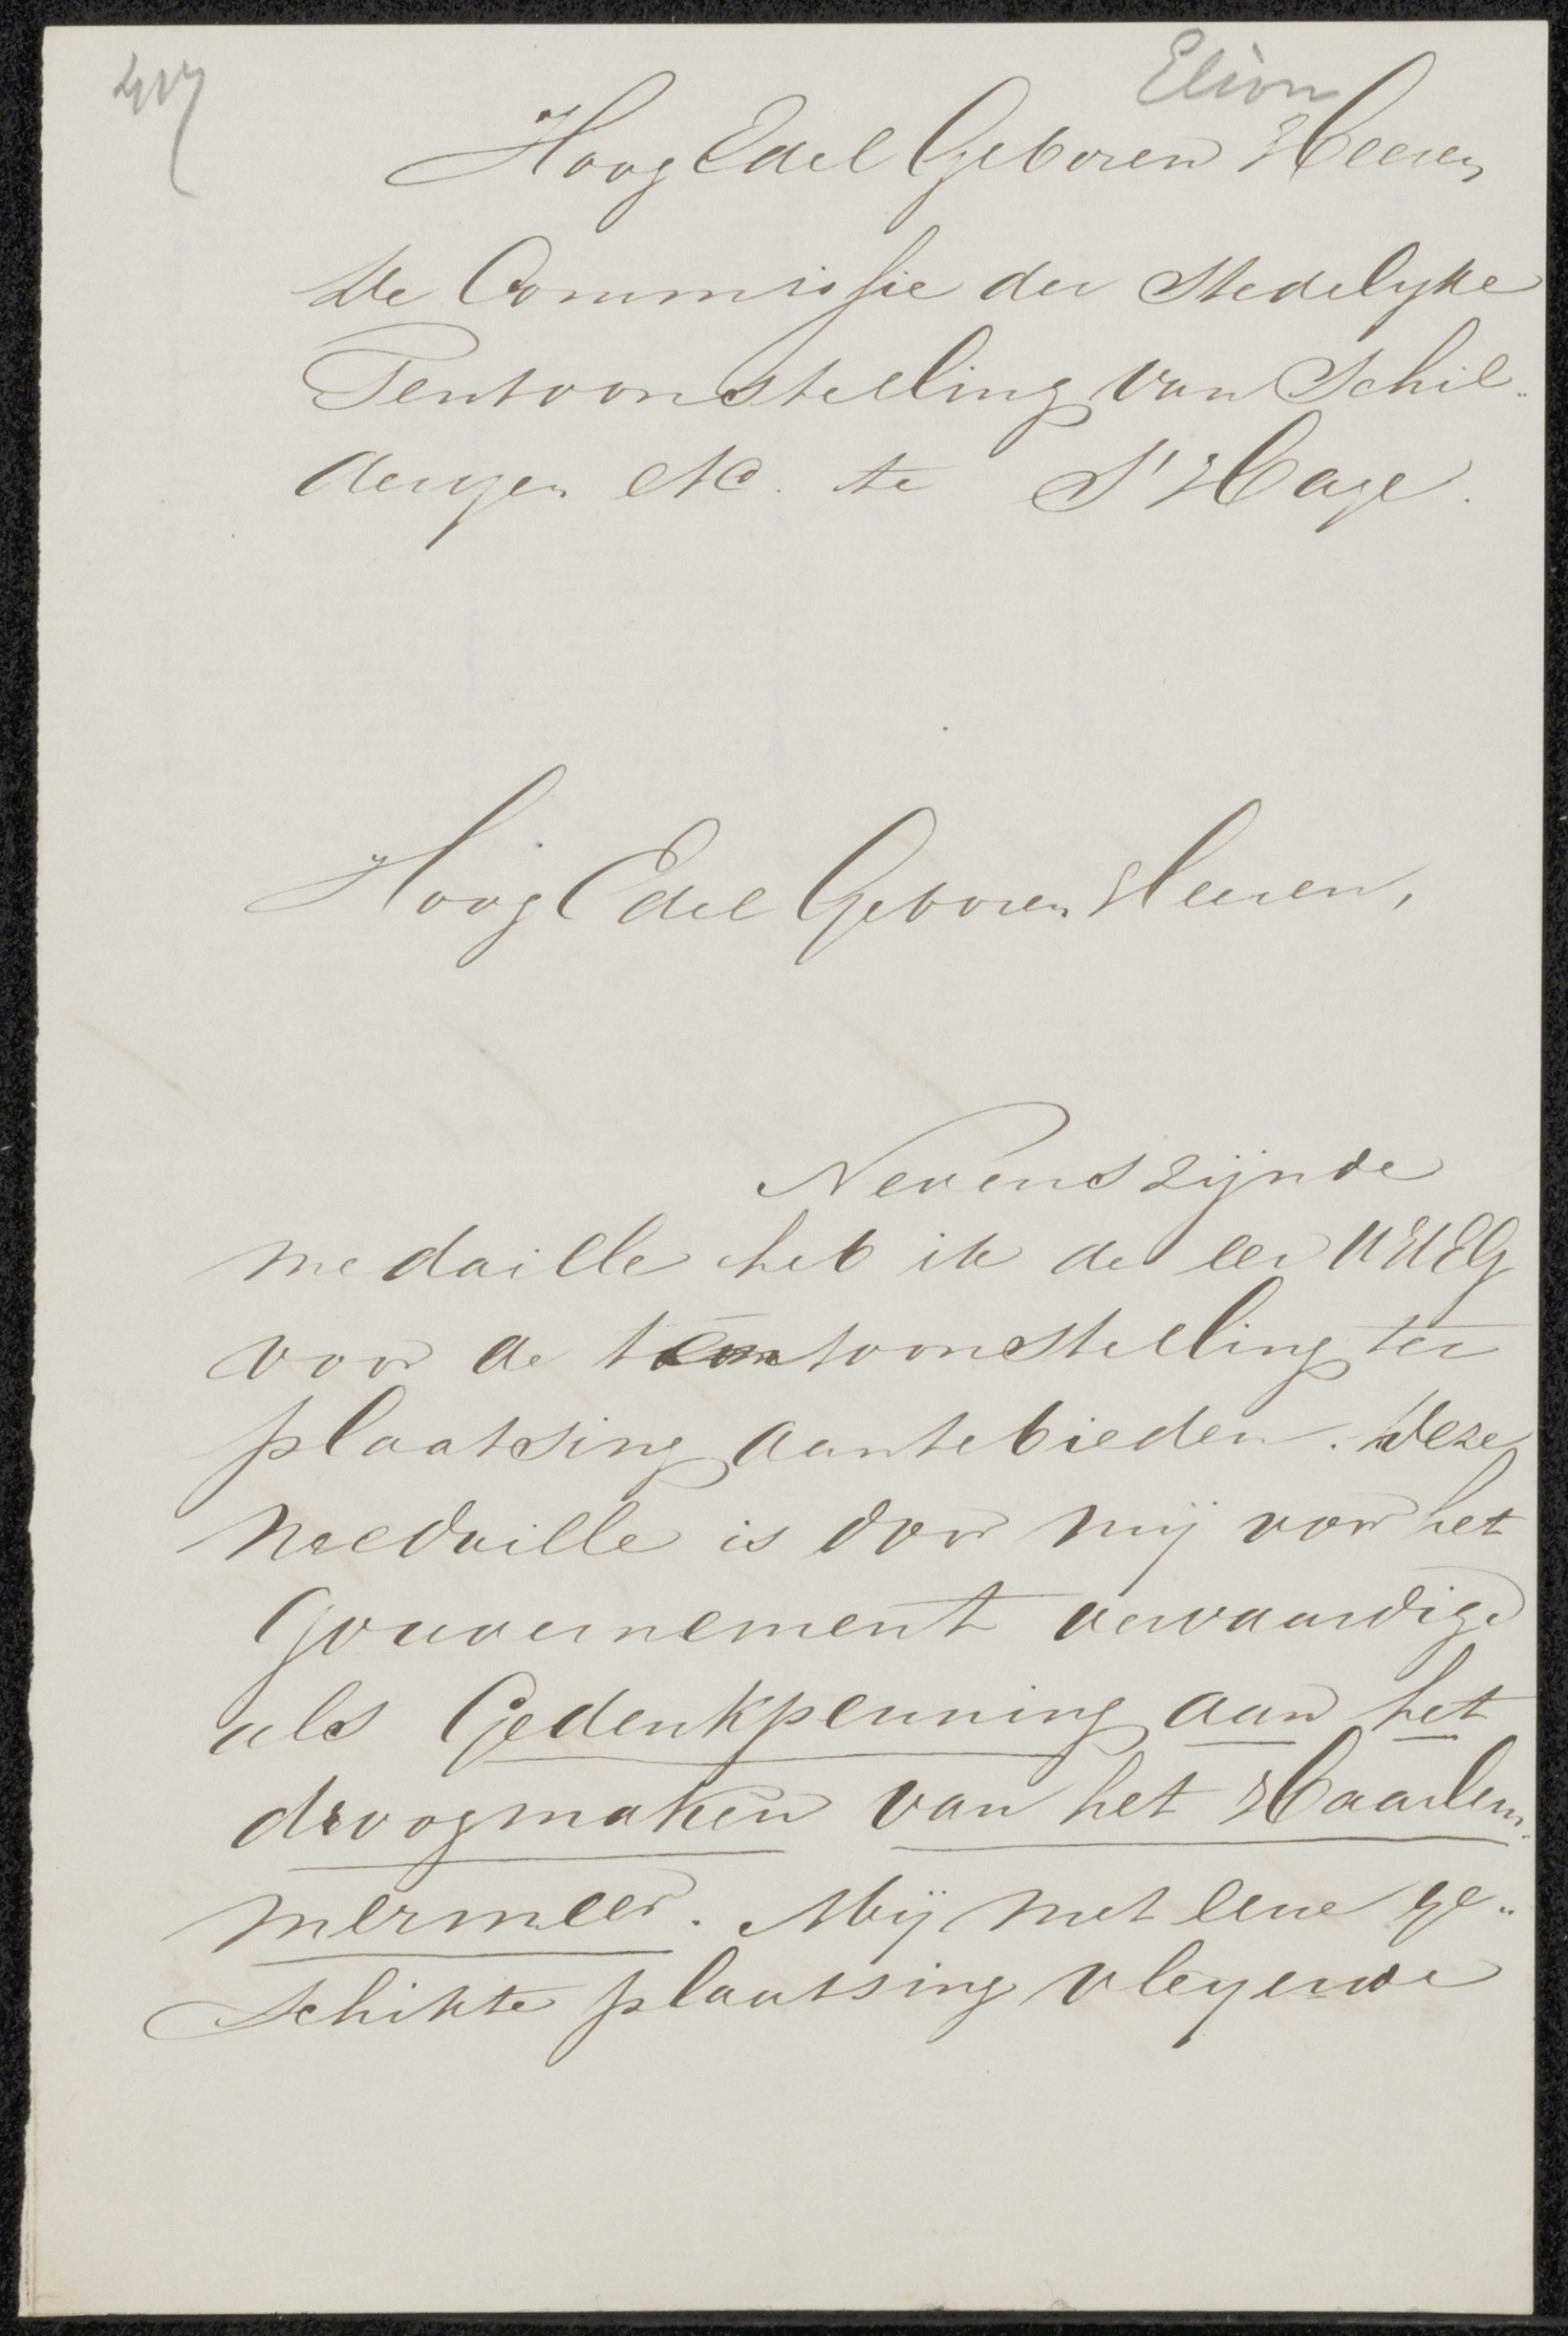 Elion
Hoog Edel Geboren Heeren
De Commissie der Stedelyke
Tentoonstelling van Schil„
deryen etc. te S'Hage.
Hoog Edel Geboren Heeren,
Nevens zijnde
medaille heb ik de eer UHEG
voor de tentoonstelling ter
plaatsing aantebieden. Deze
medaille is door mij voor het
Gouvernement vervaardigd
als Gedenkpenning aan het
droogmaken van het Haarlem„
mermeer. Mij met eene ge„
schikte plaatsing vleyende